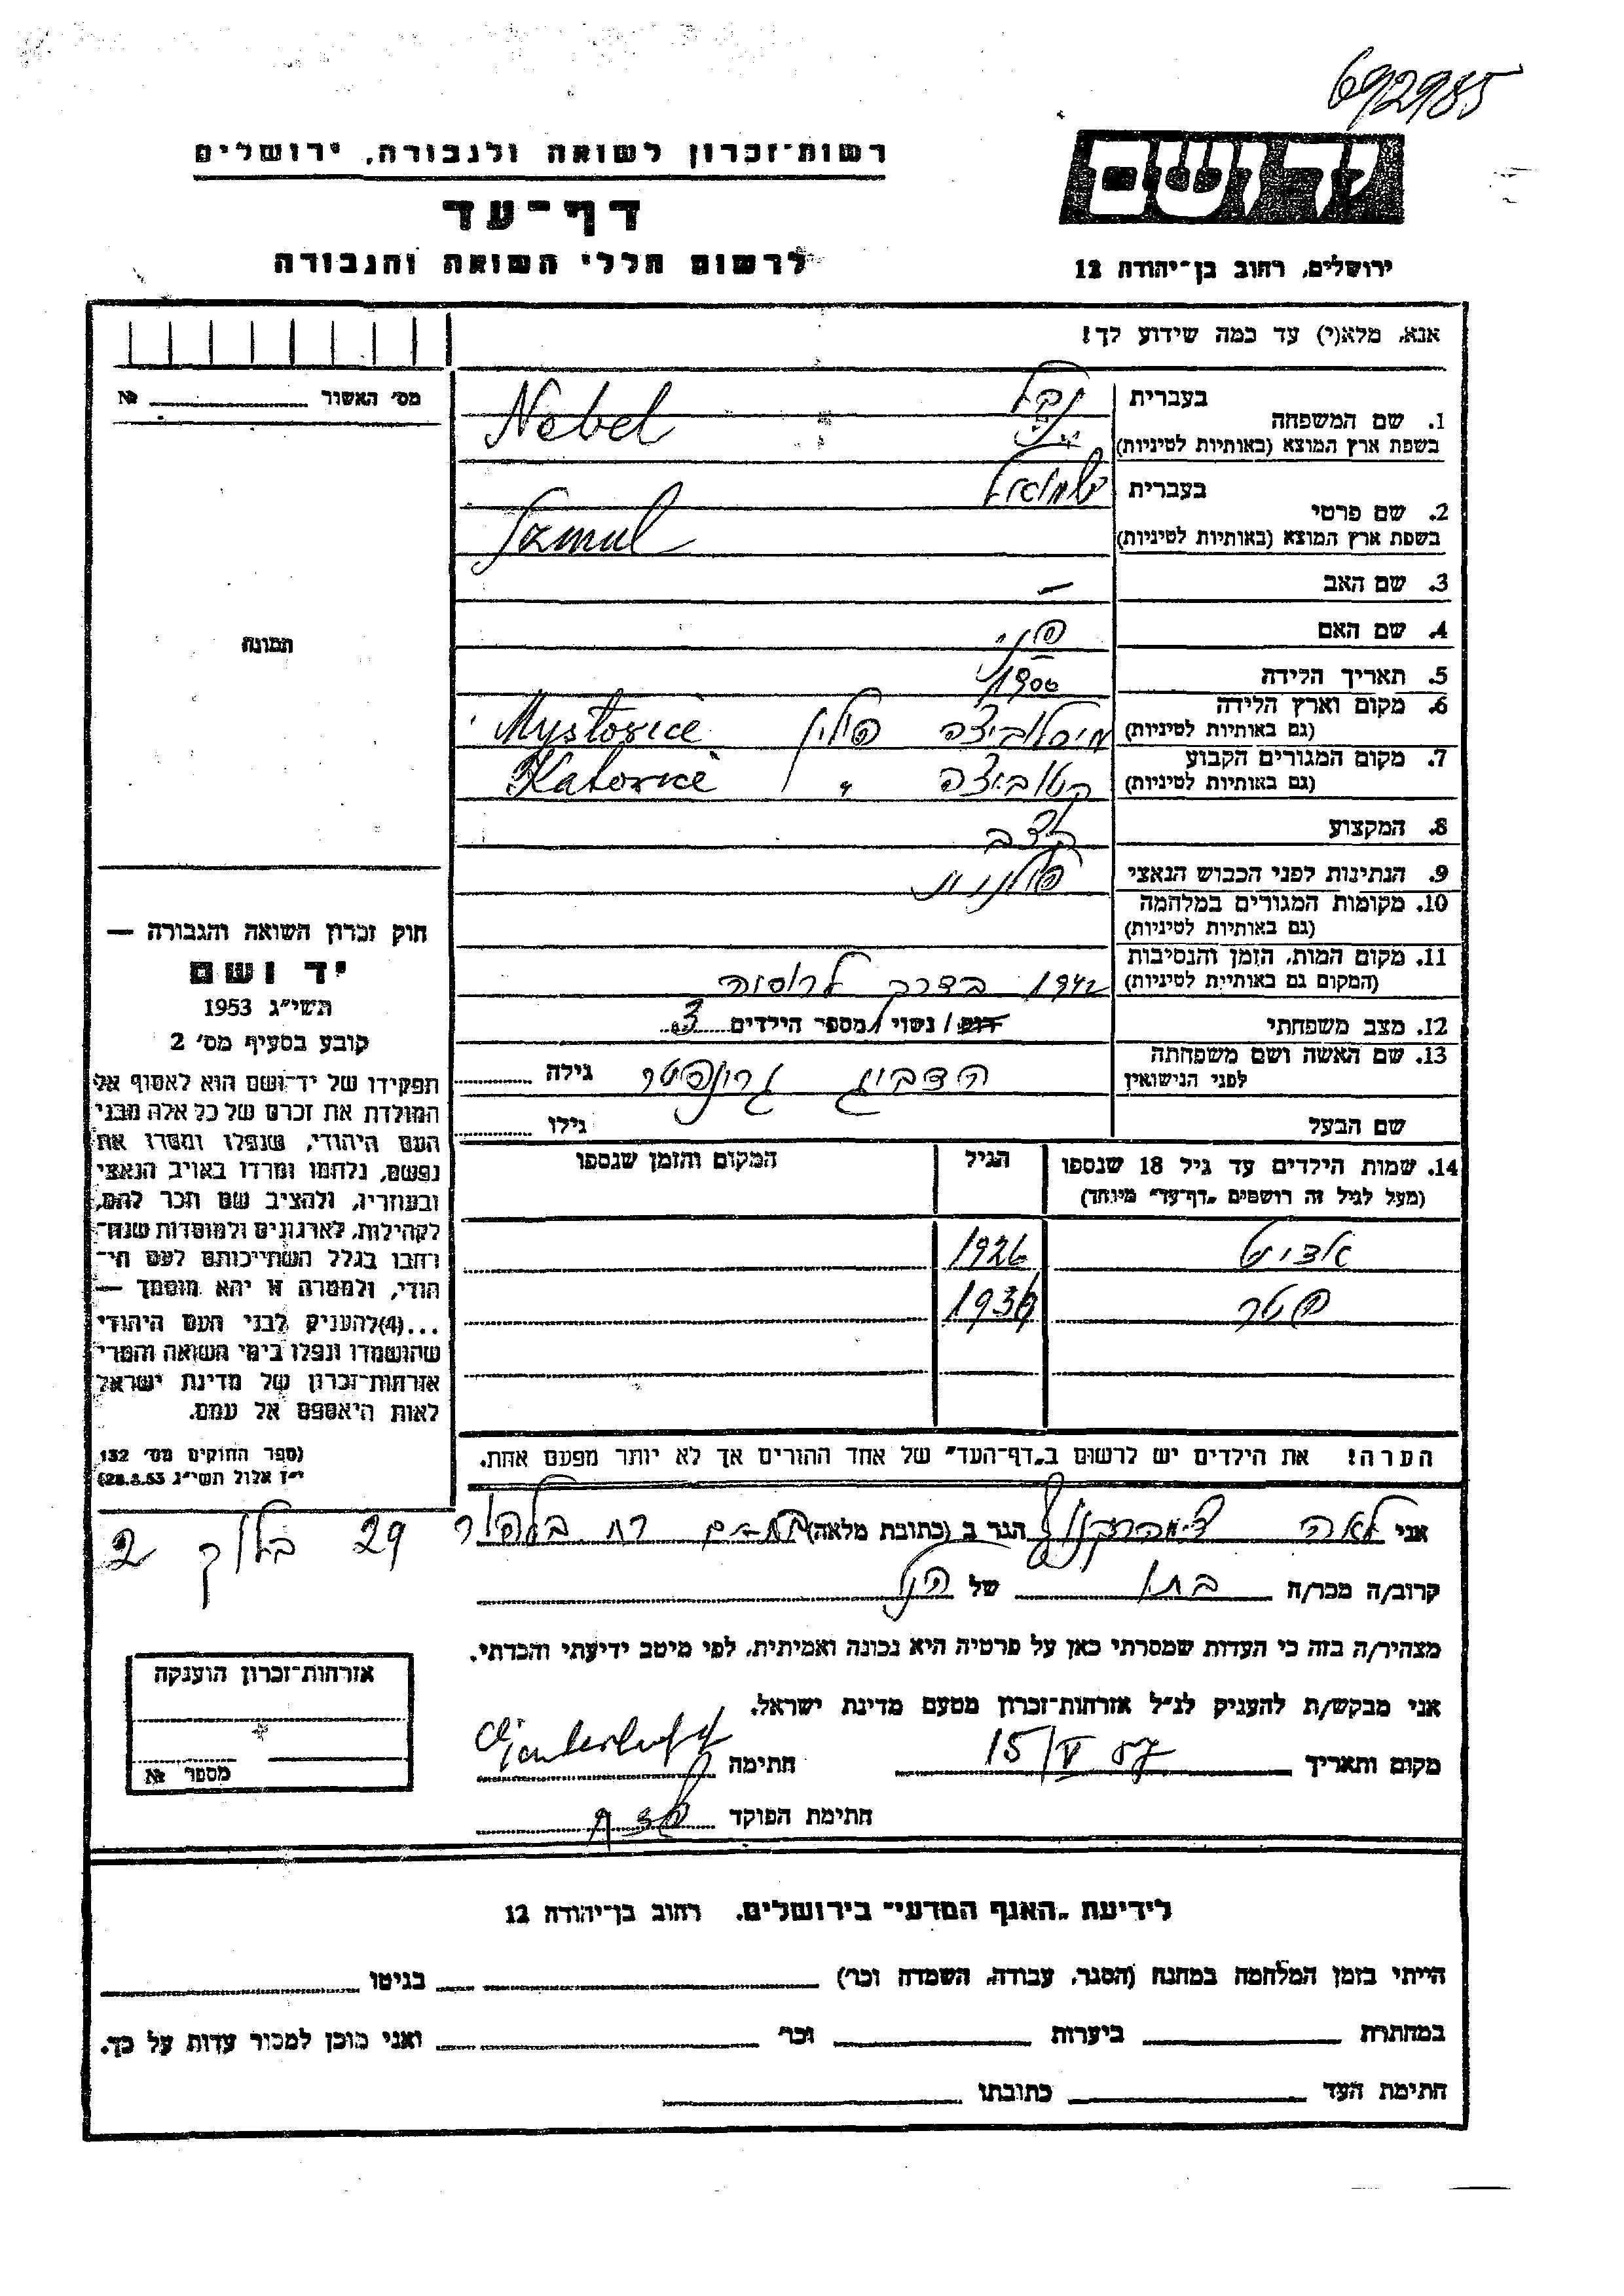 692985
רשות־זכרון לשואה ולגבורה, ירושלים
יד ושם
דף־עד
לרשום חללי השואה והגבורה
ירושלים, רחוב בן־יהודה 12
אנא, מלא(י) עד כמה שידוע לך!
מס' האשור №
1. שם המשפחה
בעברית נבל
בשפת ארץ המוצא (באותיות לטיניות) Nebel
2. שם פרטי
בעברית שמואל
בשפת ארץ המוצא (באותיות לטיניות) Szmul
3. שם האב —
4. שם האם
5. תאריך הלידה 1900
6. מקום וארץ הלידה מיסלוביצה פולין Mystovice
(גם באותיות לטיניות)
7. מקום המגורים הקבוע קטוביצה " Katovice
(גם באותיות לטיניות)
8. המקצוע קצב
9. הנתינות לפני הכבוש הנאצי פולנית
10. מקומות המגורים במלחמה
(גם באותיות לטיניות)
11. מקום המות, הזמן והנסיבות 1942 בדרך לרוסיה
(המקום גם באותיות לטיניות)
12. מצב משפחתי רווק / נשוי / מספר הילדים 3
13. שם האשה ושם משפחתה הדביג גילה
לפני הנישואין
שם הבעל גילו
תמונה
חוק זכרון השואה והגבורה —
יד ושם
תשי"ג 1953
קובע בסעיף מס' 2
תפקידו של יד־ושם הוא לאסוף אל
המולדת את זכרם של כל אלה מבני
העם היהודי, שנפלו ומסרו את
נפשם, נלחמו ומרדו באויב הנאצי
ובעוזריו, ולהציב שם וזכר להם,
לקהילות, לארגונים ולמוסדות שנח־
רבו בגלל השתייכותם לעם הי־
הודי, ולמטרה זו יהא מוסמך —
...(4) להעניק לבני העם היהודי
שהושמדו ונפלו בימי השואה והמרי
אזרחות־זכרון של מדינת ישראל
לאות היאספם אל עמם.
(ספר החוקים מס' 132
י"ז אלול תשי"ג 28.8.53)
14. שמות הילדים עד גיל 18 שנספו הגיל המקום והזמן שנספו
(מעל לגיל זה רושמים „דף־עד" מיוחד)
אדיט 1926
פטר 1936
הערה! את הילדים יש לרשום ב„דף־העד" של אחד ההורים אך לא יותר מפעם אחת.
אני לאה הגר ב (כתובת מלאה) רח בלפור 29 בלוק 2
קרוב/ה מכר/ה בתו של הנ"ל
מצהיר/ה בזה כי העדות שמסרתי כאן על פרטיה היא נכונה ואמיתית, לפי מיטב ידיעתי והכרתי.
אני מבקש/ת להעניק לנ"ל אזרחות־זכרון מטעם מדינת ישראל.
מקום ותאריך 15/V 87 חתימה
חתימת הפוקד
אזרחות־זכרון הוענקה
מספר №
לידיעת „האגף המדעי" בירושלים, רחוב בן־יהודה 12
הייתי בזמן המלחמה במחנה (הסגר, עבודה, השמדה וכו') בגיטו
במחתרת ביערות וכו' ואני מוכן למסור עדות על כך.
חתימת העד כתובתו